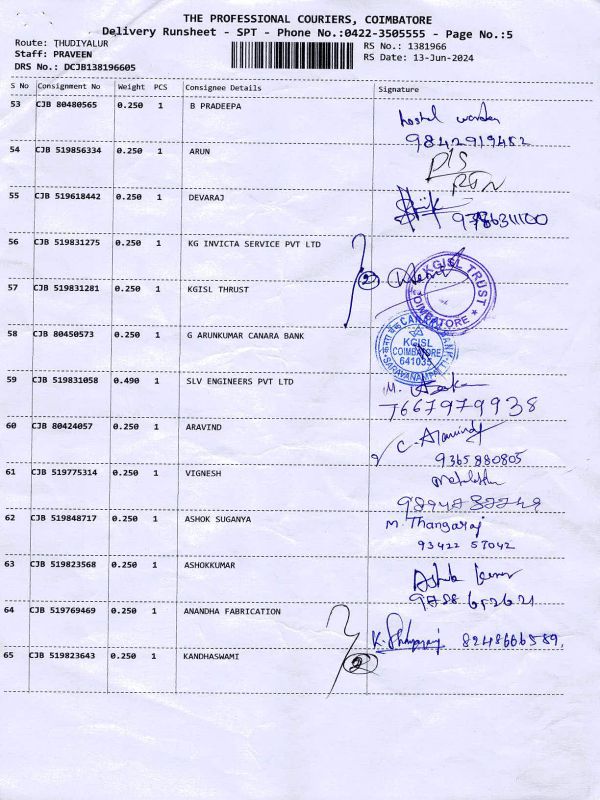 THE PROFESSIONAL COURIERS, COIMBATORE
Delivery Runsheet - SPT - Phone No.:0422-3505555 - Page No.:5
Route: THUDIYALUR
Staff: PRAVEEN
DRS No.: DCJB138196605
RS No.: 1381966
RS Date: 13-Jun-2024
S No Consignment No Weight PCS Consignee Details Signature
53 CJB 80480565 0.250 1 B PRADEEPA
hostel warden
9842919452
54 CJB 519856334 0.250 1 ARUN
55 CJB 519618442 0.250 1 DEVARAJ
56 CJB 519831275 0.250 1 KG INVICTA SERVICE PVT LTD
2
KGISL TRUST
COIMBATORE
57 CJB 519831281 0.250 1 KGISL THRUST
58 CJB 80450573 0.250 1 G ARUNKUMAR CANARA BANK
CANARA BANK
KGISL
COIMBATORE
641035
SARAVANAMPATTI
59 CJB 519831058 0.490 1 SLV ENGINEERS PVT LTD
M.
7667979938
60 CJB 80424057 0.250 1 ARAVIND
C. Aravind
9365880805
61 CJB 519775314 0.250 1 VIGNESH
62 CJB 519848717 0.250 1 ASHOK SUGANYA
M. Thangaraj
93422 57042
63 CJB 519823568 0.250 1 ASHOKKUMAR
Ashok Kumar
9788 652621
64 CJB 519769469 0.250 1 ANANDHA FABRICATION
K. 8248666589.
2
65 CJB 519823643 0.250 1 KANDHASWAMI